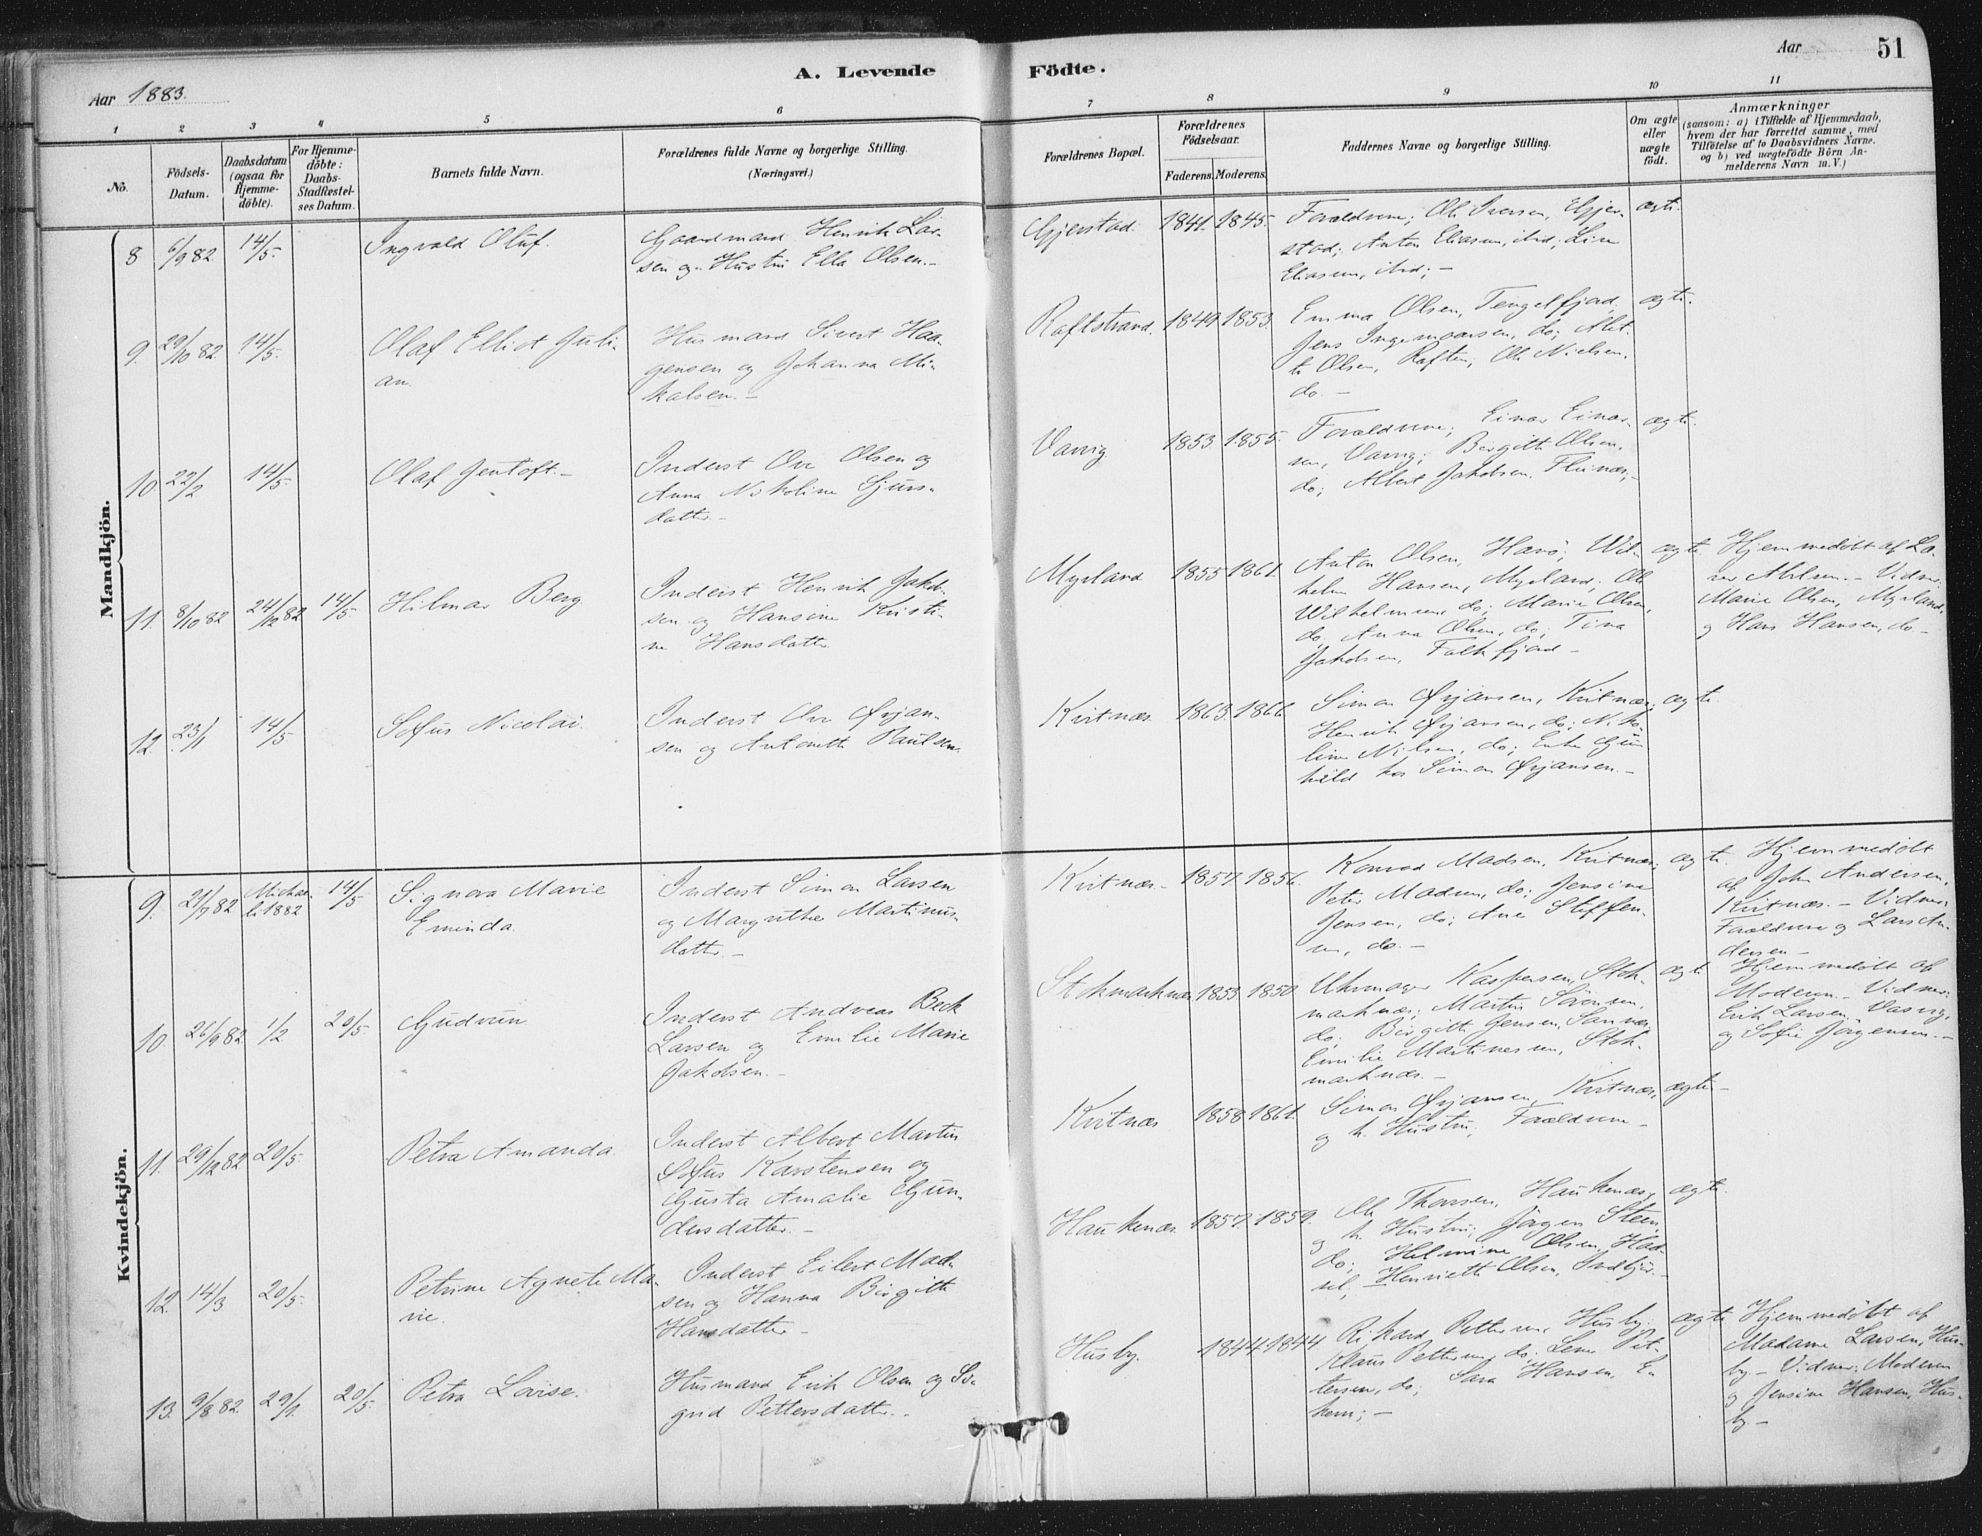 Aar 1883.
A. Levende
Födte.
Aar
51
1 2 3 4 5 6 7 8 9 10 11
No.
Födsels-Datum.
Daabsdatum (ogsaa for Hjemmedöbte).
For Hjemmedöbte: Daabs-Stadfæstelses Datum.
Barnets fulde Navn.
Forældrenes fulde Navne og borgerlige Stilling. (Næringsvei.)
Forældrenes Bopæl.
Forældrenes Födselsaar.
Faderens. Moderens.
Faddernes Navne og borgerlige Stilling.
Om ægte eller uægte födt.
Anmærkninger
(saasom: a) i Tilfælde af Hjemmedaab,
hvem der har forrettet samme, med
Tilföielse af to Daabsvidners Navne.
og b) ved uægtefödte Börn An-
melderens Navn m. V.)
Mandkjön.
8 6/9 82 14/5. Ingvald Oluf.
Gaardmand Henrik Lar-
sen og Hustru Ella Olsen.-
Gjerstad 1841. 1845.
Forældrene; Ole Iversen, Gjer-
stad; Anton Eliasen, ibid; Line
Eliasen, ibid; -
ægte.
9. 29/10 82 14/5. Olaf Elliot Juli-
an.
Husmand Sivert Haa-
gensen og Johanna Mi-
kalsen.-
Raftstrand. 1849. 1853.
Emma Olsen, Tengelfjord,
Jens Ingemoarsen, do; Abel-
te Olsen, Raften; Ole Nielsen.
do.-
ægte.
10 22/2 14/5. Olaf Jentoft.-
Inderst Ove Olsen og
Anna Nikoline Sjurs-
datter.-
Vavig 1853 1855.
Forældrene; Einar Einar-
sen, Varvig; Birgitte Olsen,
do; Albert Jakobsen, Flunæs;-
ægte.
11. 8/10 82 24/12 82 14/5. Hilmar Berg
Inderst Henrik Jakob-
sen og Hansine Kristi-
ne Hansdatter
Myrland 1855 1861.
Anton Olsen, Havö; Wil-
helm Hansen, Myrland; Ole
Wilhelmsen, do; Marie Olsen,
do, Anna Olsen, do; Tina
Jakobsen, Falkfjord -
ægte
Hjemmedöbt af La-
rer Abelsen.- Vidner:
Marie Olsen, Myrland,
og Hans Hansen, do-
12. 23/1 14/5 Sofus Nicolai.
Inderst Ove Ørjan-
sen og Antonette Paulsen.
Kvitnæs 1863. 1866.
Simon Ørjansen, Kvitnæs;
Henrik Ørjansen, do; Niko-
line Nilsen, do; Enke Gun
hild hos Simon Ørjansen.-
ægte
Kvindekjön.
9. 21/9 82 Michae-
li 1882 14/5 Signora Marie
Eminda.
Inderst Simon Larsen
og Margrethe Martinus-
datter.-
Kvitnæs.- 1857. 1856.
Konrad Madsen, Kvitnæs;
Peter Madsen, do; Jensine
Jensen, do; Ane Steffen-
sen, do.-
ægte.
Hjemmedöbt
af John Andersen,
Kvitnæs.- Vidner:
Forældrene og Lars An-
dersen-
10. 26/9 82 1/2 20/5. Gudrun
Inderst Andreas Beck
Larsen og Emilie Marie
Jakobsen.-
Stokmarknæs 1853. 1850.
Uhrmager Kaspersen, Stok-
marknæs; Martin Sörensen,
do. Birgitte Jensen, Sannæs,
Emilie Martinussen, Stok-
marknæs.-
ægte
Hjemmedöbt af
Moderen.- Vidner:
Erik Larsen, Vasvig,
og Sofie Jørgensen.-
11. 29/12 82 20/5. Petra Amanda.
Inderst Albert Martin
Sofus Karstensen og
Gusta Amalie Gun-
dersdatter.-
Kvitnæs 1858 1861.
Simon Ørjansen, Kvitnæs,
og h. Hustru; Forældrene-
ægte-
12. 14/3 20/5. Petrine Agnete Ma-
rie.
Inderst Eilert Mad-
sen og Hanna Birgitte
Hansdatter-
Haukenæs 1857. 1859.
Ole Thorsen, Haukenæs,
og h. Hustru; Jörgen Steen,
do; Helmine Olsen, Had-
sel; Henriette Olsen, Indbjør.-
ægte.
13. 9/8 82. 29/1. 20/5. Petra Lovise.
Husmand Erik Olsen og Si-
grid Pettersdatter.-
Husby. 1844. 1844
Rikard Pettersen, Husby.
Klaus Pettersen, do; Lene Pet-
tersen, do; Sara Hansen, E-
kern;-
ægte
Hjemmedöbt af
Madame Larsen, Hus-
by.- Vidner: Moderen
og Jensine Hansen, Hus-
by.-